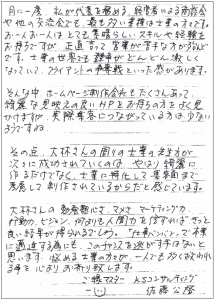 月に一度、私が代表を務める、経営者による商談会
や他の交流会でも、最も多い業種は士業の方々です。
お一人お一人はとても素晴らしいスキルや経験を
お持ちですが、正直言って営業が苦手な方が多いなど
です。士業の世界でも競争がどんどん激しく
なっていて、クライアントの争奪戦といった感があります。
そんな中ホームページ制作会社もたくさんあって、
綺麗な見映えの良いHPをお持ちの方をよく見
かけますが、実際集客につながっている方は少ない
ようですね。
その点、大林さんの周りの士業の先生方が
次々に成功されていくのは、やはり綺麗に
作るだけでなく、士業に特化して集客面まで
考慮して制作されているからだと感じています。
大林さんの勤勉熱心さ、マメさ、マーケティング力、
行動力、ビジョン、何よりも人間力を信じれば、きっと
良い結果が得られるでしょう。「仕事ハンパ」で本業
に邁進する為にも、このチャンスを逃がす手はないと
思います。悩める士業の方が一人でも多く救われ
る事を心よりお祈り致します。
ご縁マスター KSコンサルティング
佐藤公隆